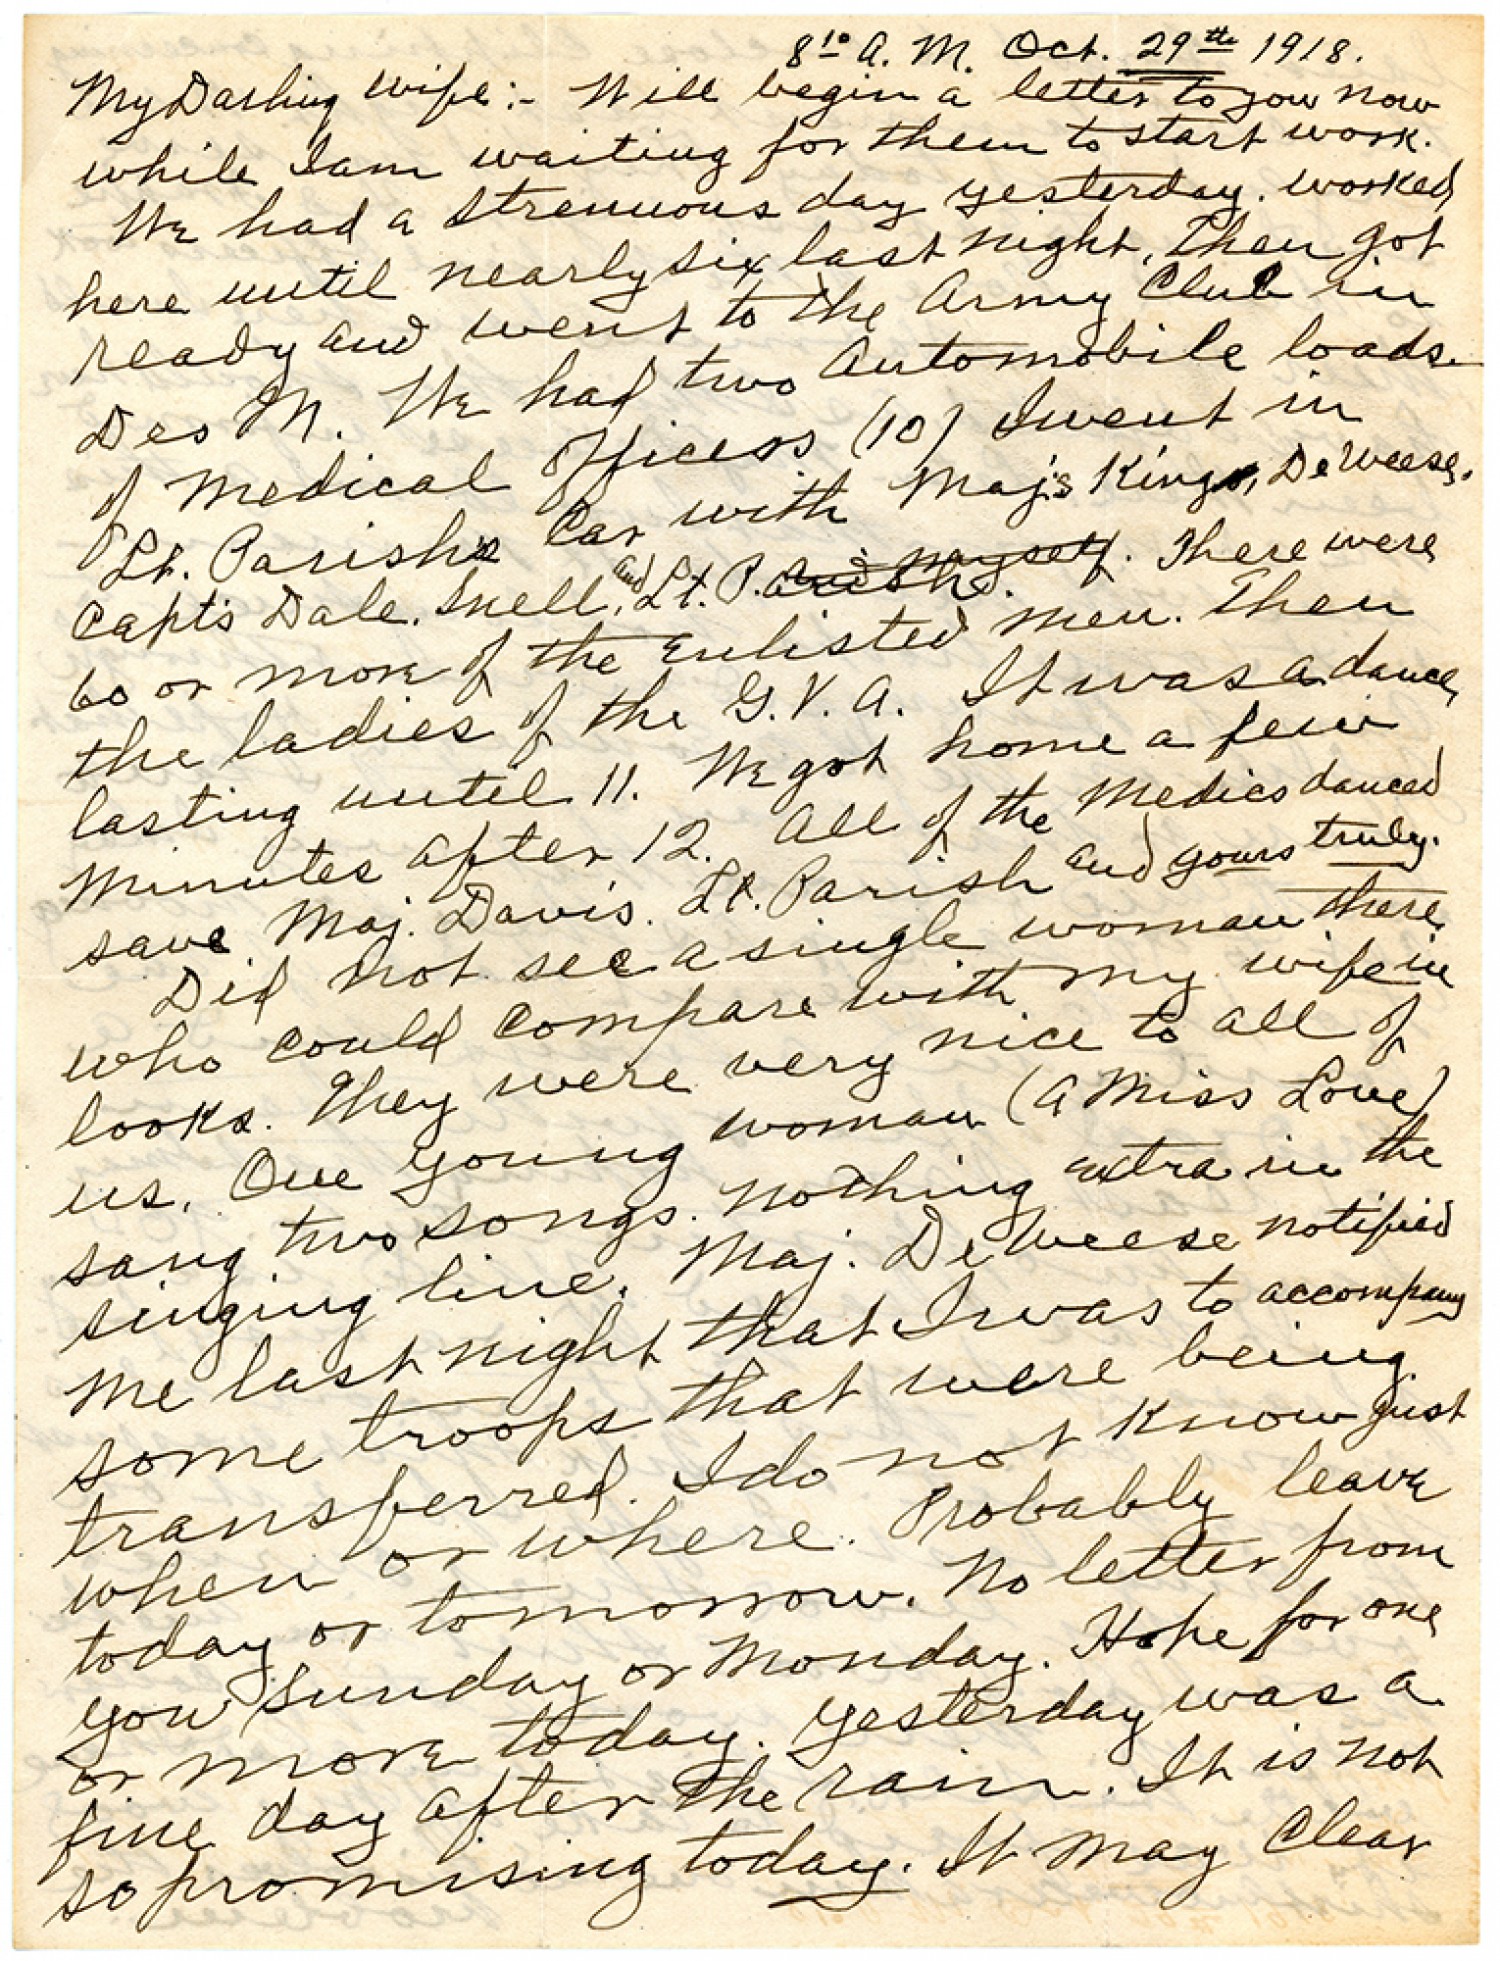 8 10 A. M. Oct. 29th 1918.
My Darling Wife:- Will begin a letter to you now
while I am waiting for them to start work.
We had a strenuous day yesterday. worked
here until nearly six last night, Then got
ready and went to the Army Club in
Des M. We had two automobile loads
of Medical Officers (10) I went in
Lt. Parish's Car with Maj's King, De Weese,
Capt's Dale. Snell, and Lt. Parish and myself. There were
60 or more of the Enlisted men. Then
the ladies of the G. V. A. It was a dance,
lasting until 11. We got home a few
minutes after 12. All of the Medics danced
save Maj. Davis. Lt. Parish and yours truly.
Did not see a single woman there
who could compare with my wife in
looks. They were very nice to all of
us. One young woman (A Miss Love)
sang two songs. nothing extra in the
singing line. Maj. De Weese notified
me last night that I was to accompany
some troops that were being
transferred. I do not know just
when or where. Probably leave
today or tomorrow. No letter from
you Sunday or Monday. Hope for one
or more today. Yesterday was a
fine day after the rain. It is not
so promising today. It may clear